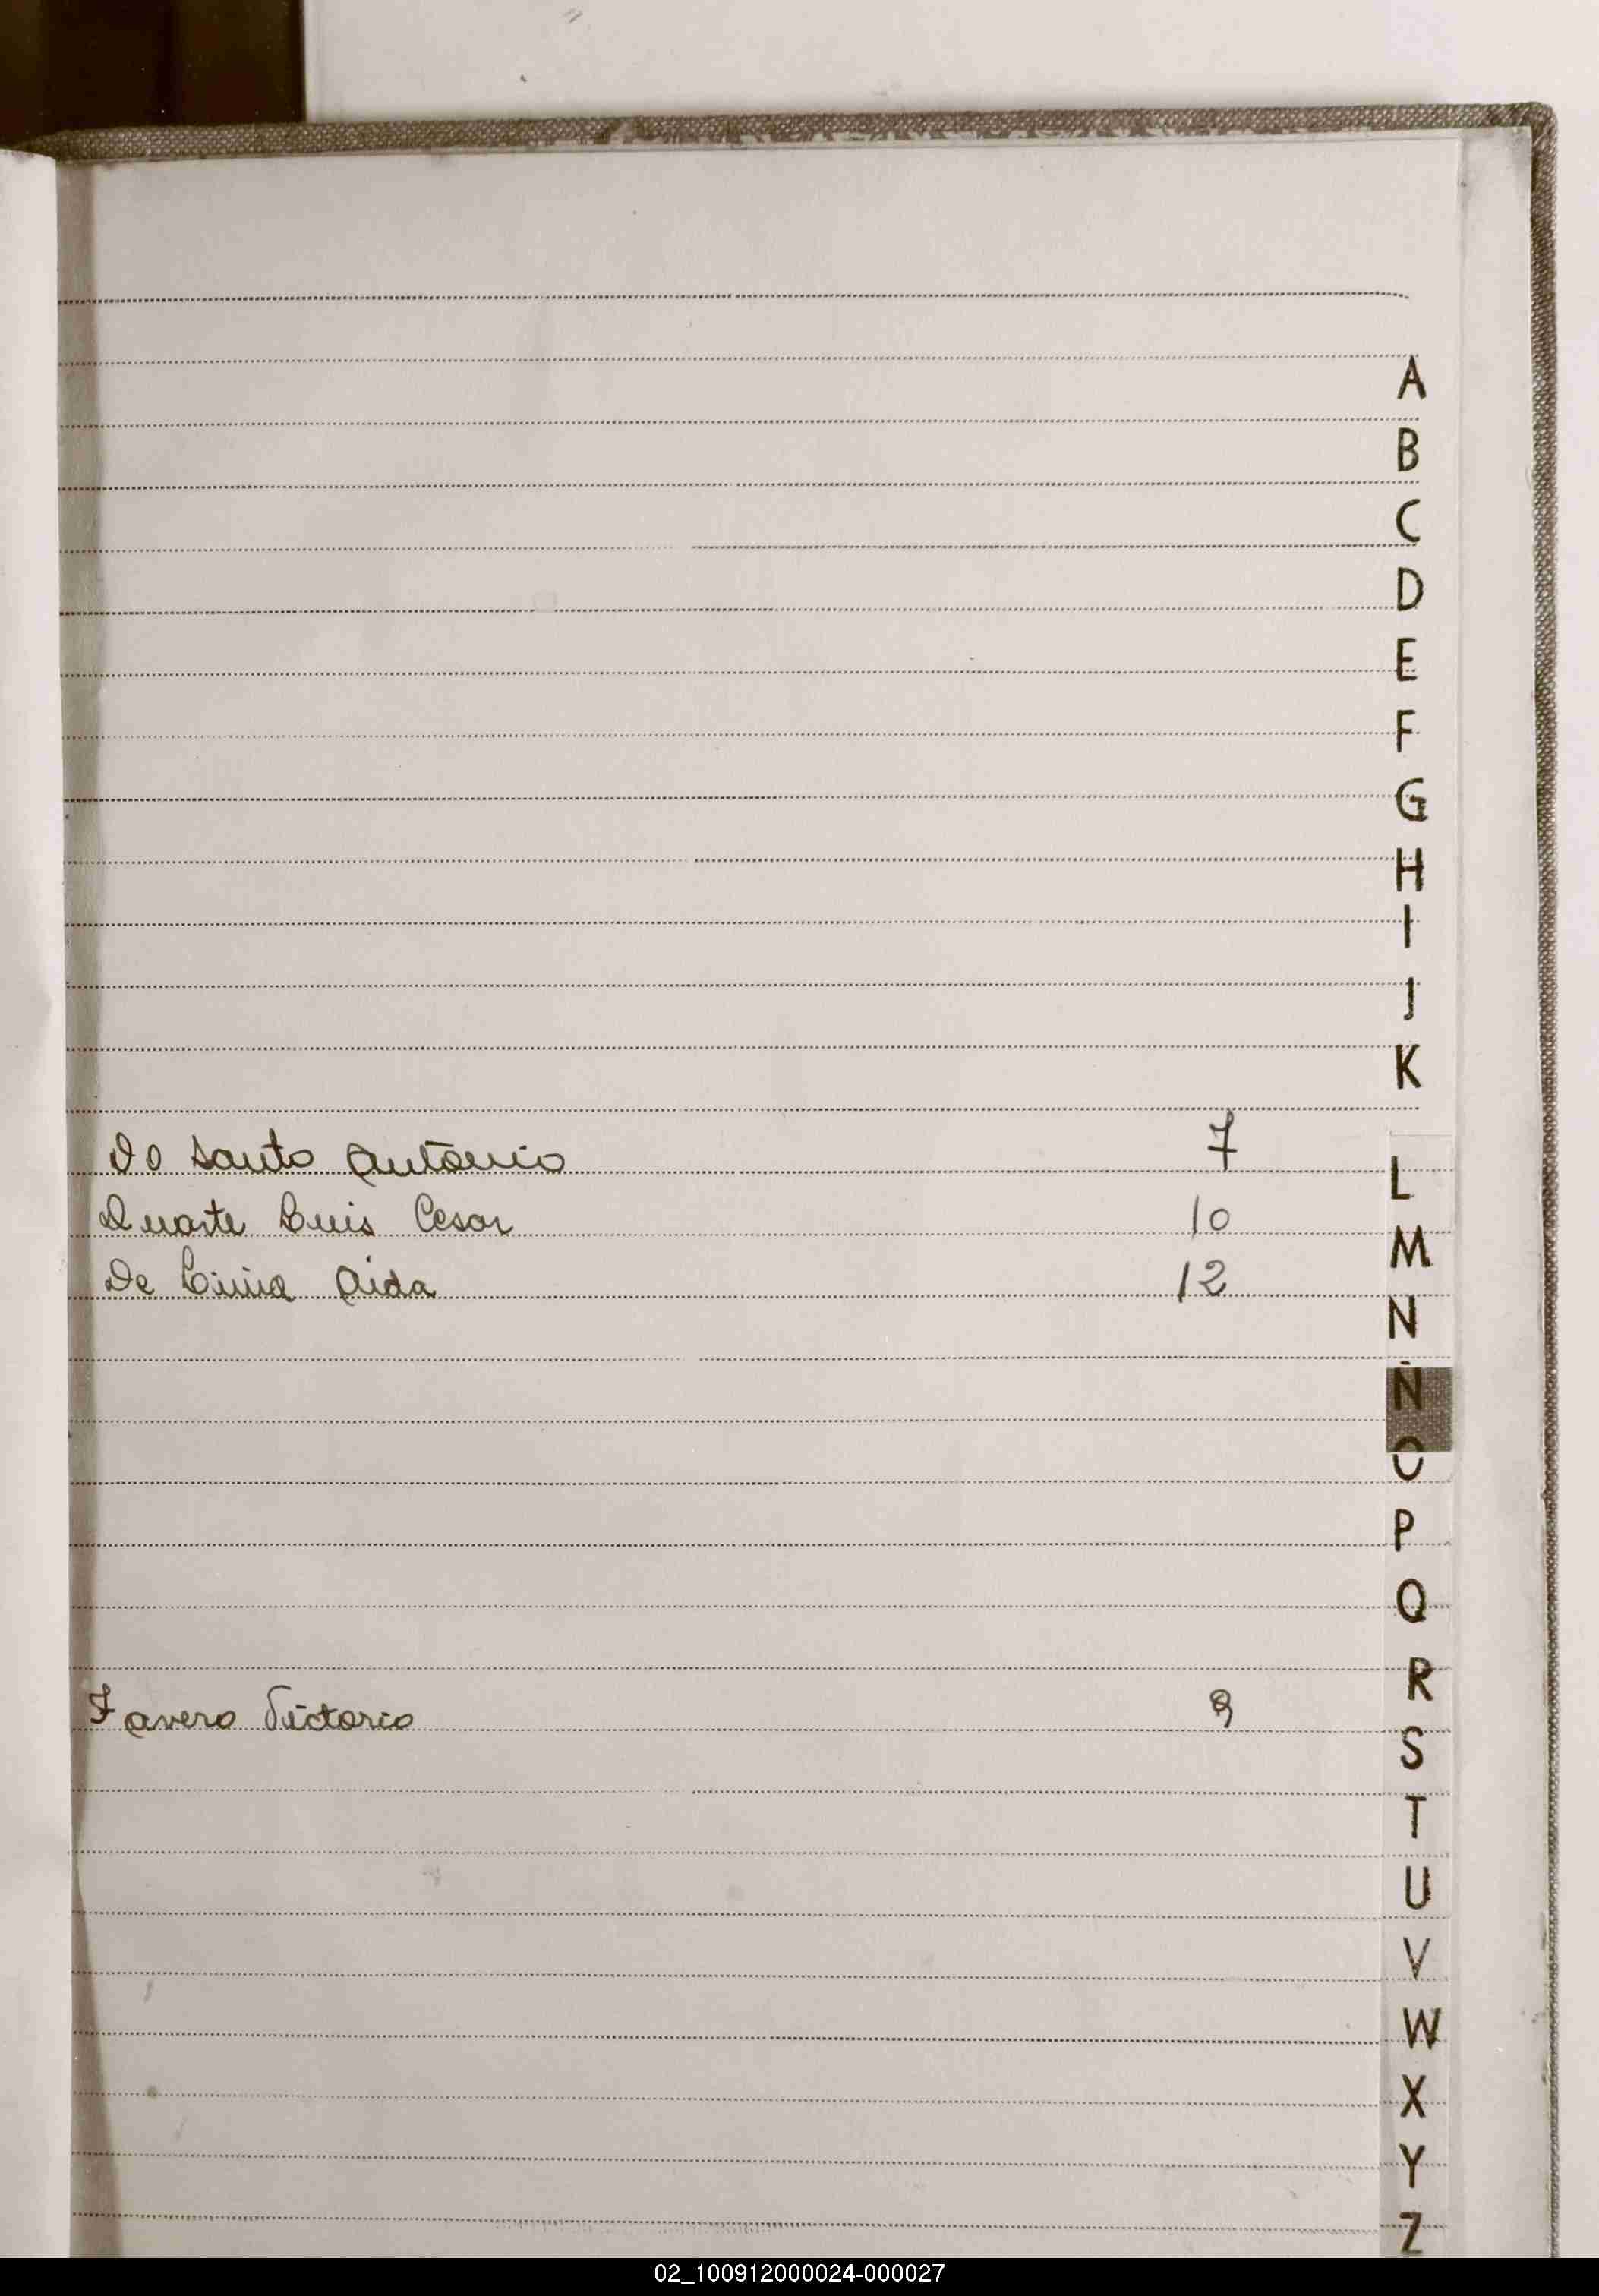 A
B
C
D
E
F
G
H
I
J
K
Do Santo Antonio 7
L
Duarte Luis Cesar 10
M
De Lima Aida 12
N
Ñ
O
P
Q
R
Favero Victorio 9
S
T
U
V
W
X
Y
Z
02_100912000024-000027